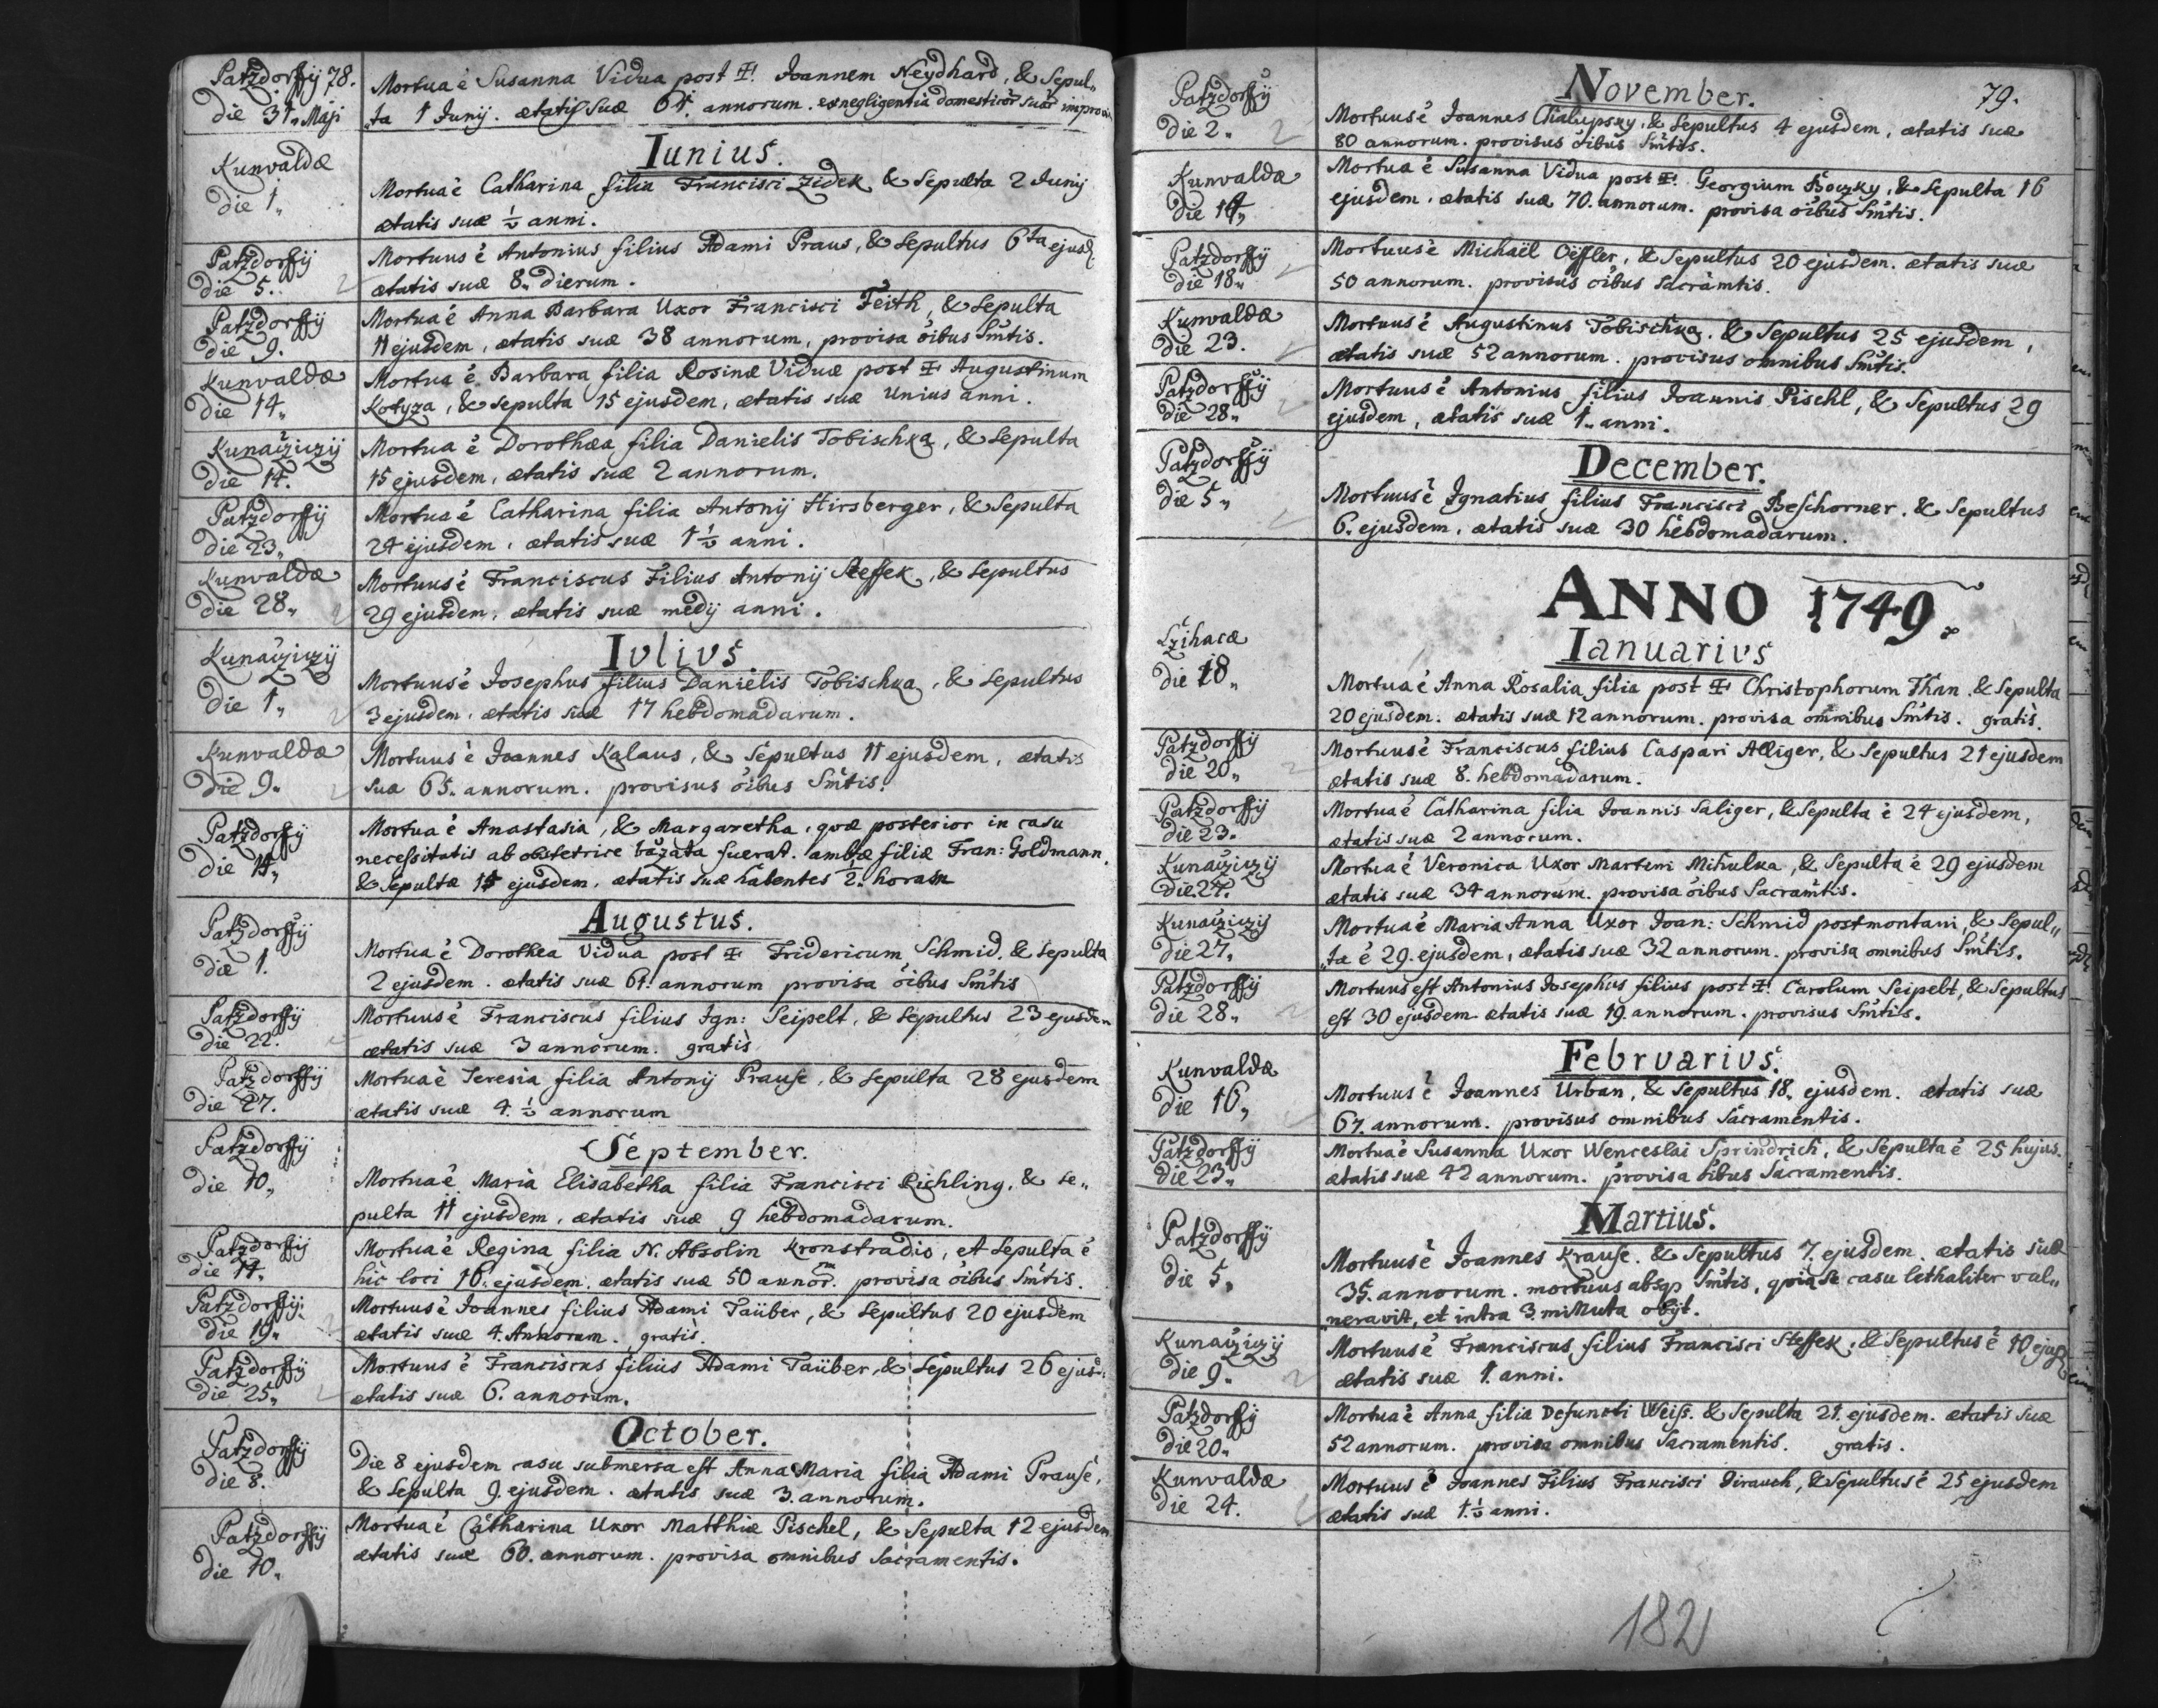 78.
Patzdorffij
die 31„ Maji
Mortua ē Susanna Vidua post ✠ Joannem Neydhard, & Sepul„
„ta 1 Junij. ætatis suæ 61. annorum. ex negligentia domesticor̄ suor̄ improvi
Iunius.
Kunvaldæ
die 1„
Mortua ē Catharina filia Francisci Zidek & Sepulta 2 Junij
ætatis suæ ½ anni.
Patzdorffij
die 5.
Mortuus ē Antonius filius Adami Praus, & Sepultus 6ta ejusd
ætatis suæ 8„ dierum.
Patzdorffij
die 9.
Mortua ē Anna Barbara Uxor Francisci Feith, & Sepulta
11 ejusdem, ætatis suæ 38 annorum, provisa oībus Sm̄tis.
Kunvaldæ
die 14„
Mortua ē Barbara filia Rosinæ Viduæ post ✠ Augustinum
Kotyza, & Sepulta 15 ejusdem, ætatis suæ Unius anni.
Kunačiziczij
die 14.
Mortua ē Dorothæa filia Danielis Tobischka, & Sepulta
15 ejusdem, ætatis suæ 2 annorum.
Patzdorffij
die 23„
Mortua ē Catharina filia Antonij Hirsberger, & Sepulta
24 ejusdem, ætatis suæ 1½ anni.
Kunvaldæ
die 28„
Mortuus ē Franciscus Filius Antonij Steffek, & Sepultus
29 ejusdem, ætatis suæ medij anni.
Iulius
Kunačiziczij
die 1„
Mortuus ē Josephus filius Danielis Tobischka, & Sepultus
3 ejusdem, ætatis suæ 17 hebdomadarum.
Kunvaldæ
die 9„
Mortuus ē Joannes Kalaus, & Sepultus 11 ejusdem, ætatis
suæ 65„ annorum. provisus oībus Sm̄tis.
Patzdorffij
die 14„
Mortua ē Anastasia, & Margaretha, quæ posterior in casu
necessitatis ab obstetrice baȝata fuerat. ambæ filiæ Fran: Goldmann,
& Sepultæ 15 ejusdem, ætatis suæ habentes 2. horam
Augustus.
Patzdorffij
die 1.
Mortua ē Dorothea Vidua post ✠ Fridericum Schmid, & Sepulta
2 ejusdem. ætatis suæ 61. annorum provisa oībus Sm̄tis
Patzdorffij
die 22.
Mortuus ē Franciscus filius Ign: Seipelt, & Sepultus 23 ejusdem
ætatis suæ 3 annorum. gratis
Patzdorffij
die 27.
Mortua ē Teresia filia Antonij Prause, & Sepulta 28 ejusdem
ætatis suæ 4.½ annorum
September.
Patzdorffij
die 10„
Mortua ē Maria Elisabetha filia Francisci Richling, & Se„
pulta 11 ejusdem, ætatis suæ 9 hebdomadarum.
Patzdorffij
die 14„
Mortua ē Regina filia N. Absolin Kronstradio, et Sepulta ē
hic loci 16. ejusdem, ætatis suæ 50 annor̄. provisa oībus Sm̄tis.
Patzdorffij
die 19„
Mortuus ē Joannes filius Adami Taüber, & Sepultus 20 ejusdem
ætatis suæ 4. Annorum. gratis.
Patzdorffij
die 25„
Mortuus ē Franciscus filius Adami Taüber, & Sepultus 26 ejusd:
ætatis suæ 6. annorum.
October.
Patzdorffij
die 8.
Die 8 ejusdem casu submersa est Anna Maria filia Adami Prause,
& Sepulta 9. ejusdem. ætatis suæ 3. annorum.
Patzdorffij
die 10„
Mortua ē Catharina Uxor Matthiæ Pischel, & Sepulta 12 ejusdem
ætatis suæ 60. annorum. provisa omnibus Sacramentis.
79.
November.
Patzdorffij
die 2„
Mortuus ē Joannes Chalupsky, & Sepultus 4 ejusdem, ætatis suæ
80 annorum. provisus oībus Sm̄tis.
Kunvaldæ
die 14„
Mortua ē Susanna Vidua post ✠ Georgium Boczky, & Sepulta 16
ejusdem. ætatis suæ 70. annorum. provisa oībus Sm̄tis.
Patzdorffij
die 18„
Mortuus ē Michaël Oëffler, & Sepultus 20 ejusdem. ætatis suæ
50 annorum. provisus oībus Sacram̄tis.
Kunvaldæ
die 23.
Mortuus ē Augustinus Tobischka, & Sepultus 25 ejusdem,
ætatis suæ 52 annorum. provisus omnibus Sm̄tis.
Patzdorffij
die 28„
Mortuus ē Antonius filius Joannis Pischl, & Sepultus 29
ejusdem, ætatis suæ 1„ anni.
December.
Patzdorffij
die 5„
Mortuus ē Ignatius filius Francisci Beschorner, & Sepultus
6. ejusdem, ætatis suæ 30 hebdomadarum.
ANNO 1749.
Ianuarius
die 18„
Mortua ē Anna Rosalia filia post ✠ Christophorum Than, & Sepulta
20 ejusdem. ætatis suæ 12 annorum. provisa omnibus Sm̄tis. gratis.
Patzdorffij
die 20„
Mortuus ē Franciscus filius Caspari Alliger, & Sepultus 21 ejusdem
ætatis suæ 8. hebdomadarum.
Patzdorffij
die 23.
Mortua ē Catharina filia Joannis Saliger, & Sepulta ē 24 ejusdem,
ætatis suæ 2 annorum.
Kunačiziczij
die 27.
Mortua ē Veronica Uxor Martini Mihulka, & Sepulta ē 29 ejusdem
ætatis suæ 34 annorum. provisa oībus Sacram̄tis.
Kunačiziczij
die 27„
Mortua ē Maria Anna Uxor Joan: Schmid postmontani, & Sepul„
„ta ē 29. ejusdem, ætatis suæ 32 annorum. provisa omnibus Sm̄tis.
Patzdorffij
die 28„
Mortuus est Antonius Josephus filius post ✠ Carolum Seipelt, & Sepultus
est 30 ejusdem ætatis suæ 19. annorum. provisus Sm̄tis.
Februarius.
Kunvaldæ
die 16„
Mortuus ē Joannes Urban, & Sepultus 18„ ejusdem. ætatis suæ
67. annorum. provisus omnibus Sacramentis.
Patzdorffij
die 23„
Mortua ē Susanna Uxor Wenceslai Sprindrich, & Sepulta ē 25 hujus.
ætatis suæ 42 annorum. provisa oībus Sacramentis.
Martius.
Patzdorffij
die 5„
Mortuus ē Joannes Krause, & Sepultus 7. ejusdem. ætatis suæ
35. annorum. mortuus absq Sm̄tis, quia se casu lethaliter vul„
„neravit, et intra 3 minuta obijt.
Kunačiziczij
die 9„
Mortuus ē Franciscus filius Francisci Steffek, & Sepultus ē 10 ejusd
ætatis suæ 1. anni.
Patzdorffij
die 20„
Mortua ē Anna filia Defuncti Weiss, & Sepulta 21. ejusdem. ætatis suæ
52 annorum. provisa omnibus Sacramentis. gratis.
Kunvaldæ
die 24.
Mortuus ē Joannes Filius Francisci Jirauch, & Sepultus ē 25 ejusdem
ætatis suæ 1.½ anni.
182